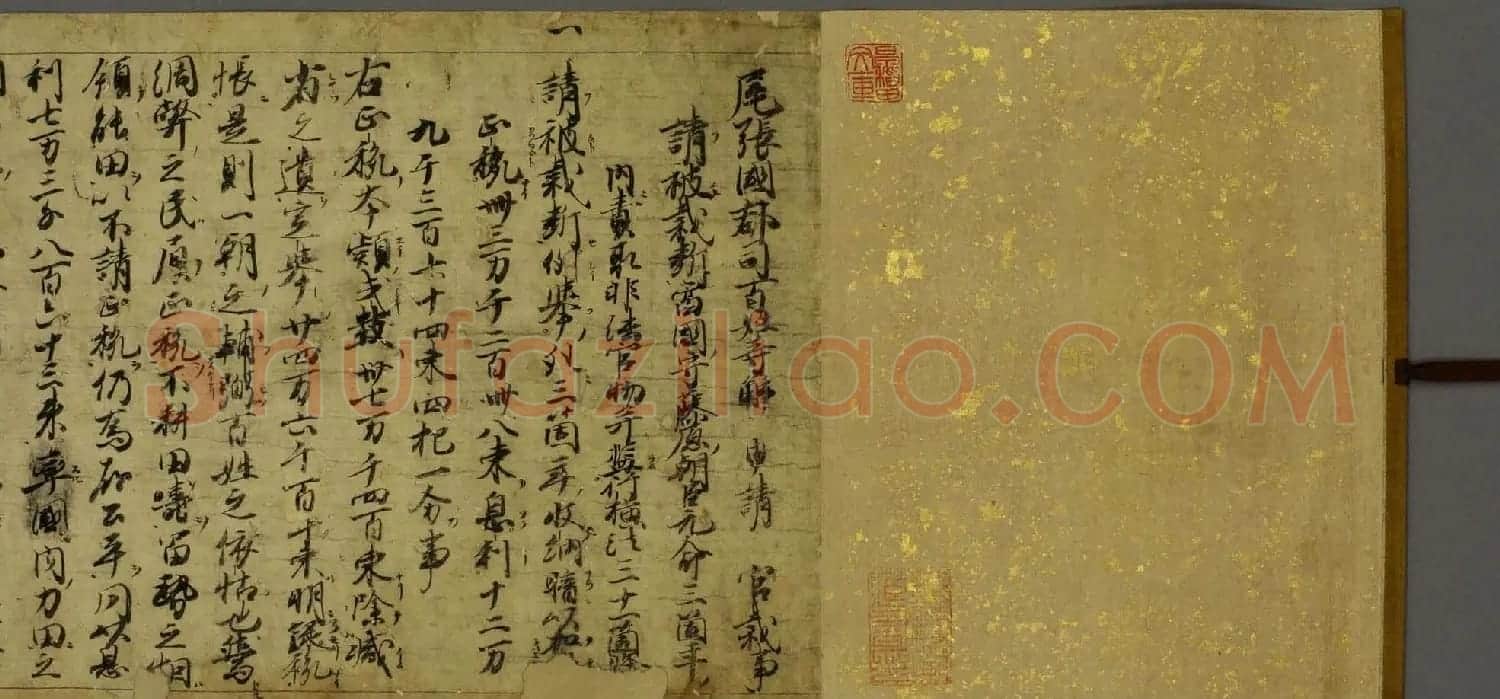 尾張國郡司百姓等解 申請 官裁事
請被裁断當國守藤原朝臣元命三箇年
内責取非法官物并濫行横法三十一箇條
一
請被裁断例擧外三箇年収納
正税卌三万千二百卌八束息利十二万
九千三百七十四束四把一分事
右正税本穎式數卅七万千四百束除減
省之遺定擧廿四万六千百十束明
帳是則一朝之輔百姓之依怙也
弊之民原正税不耕田疇留之烟
領能田以不請正税仍為公平同以息
利七万三千八百六十三束率國内力田之
Shufaziliao.COM